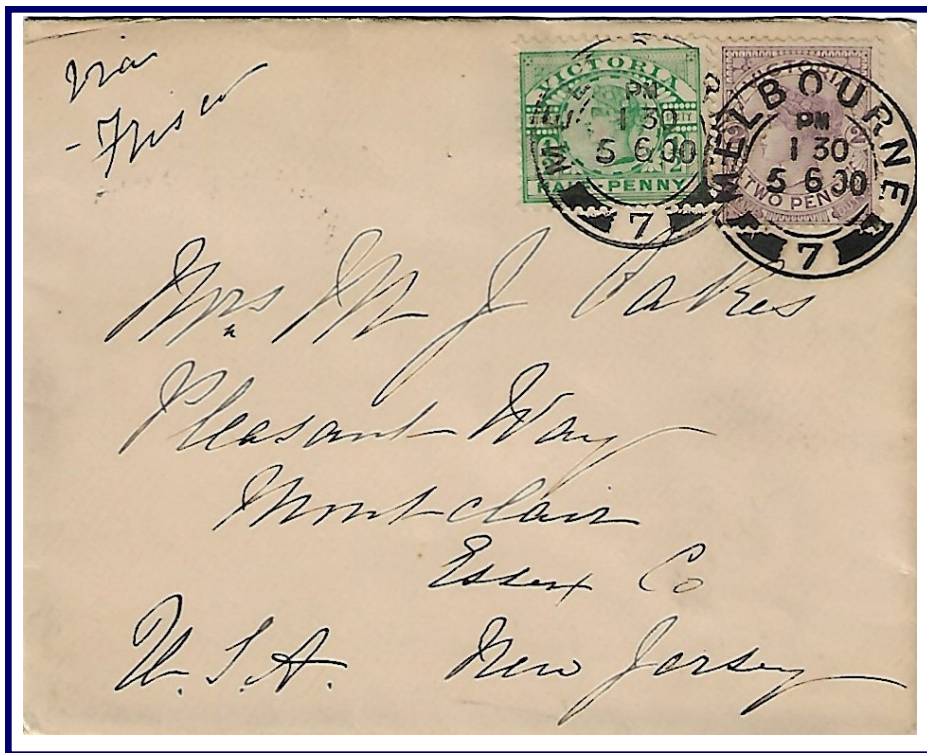 via
- Frisco
VICTORIA
HALF PENNY
PM
1 30
5 6.00
7
MELBOURNE
PM
1 30
5 6 00
7
TWO PENCE
Mrs M J Oakes
Pleasant Way
Montclair
Essex Co
U.S.A. New Jersey